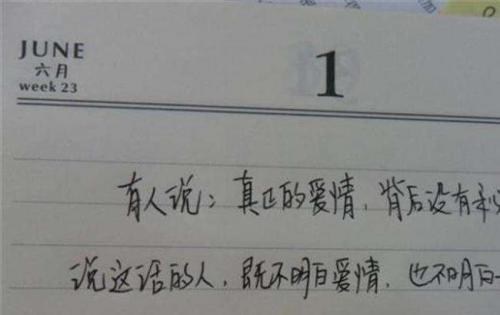 JUNE
六月
week 23
1
有人说：真正的爱情，背后没有
说这话的人，既不明白爱情，也不明白